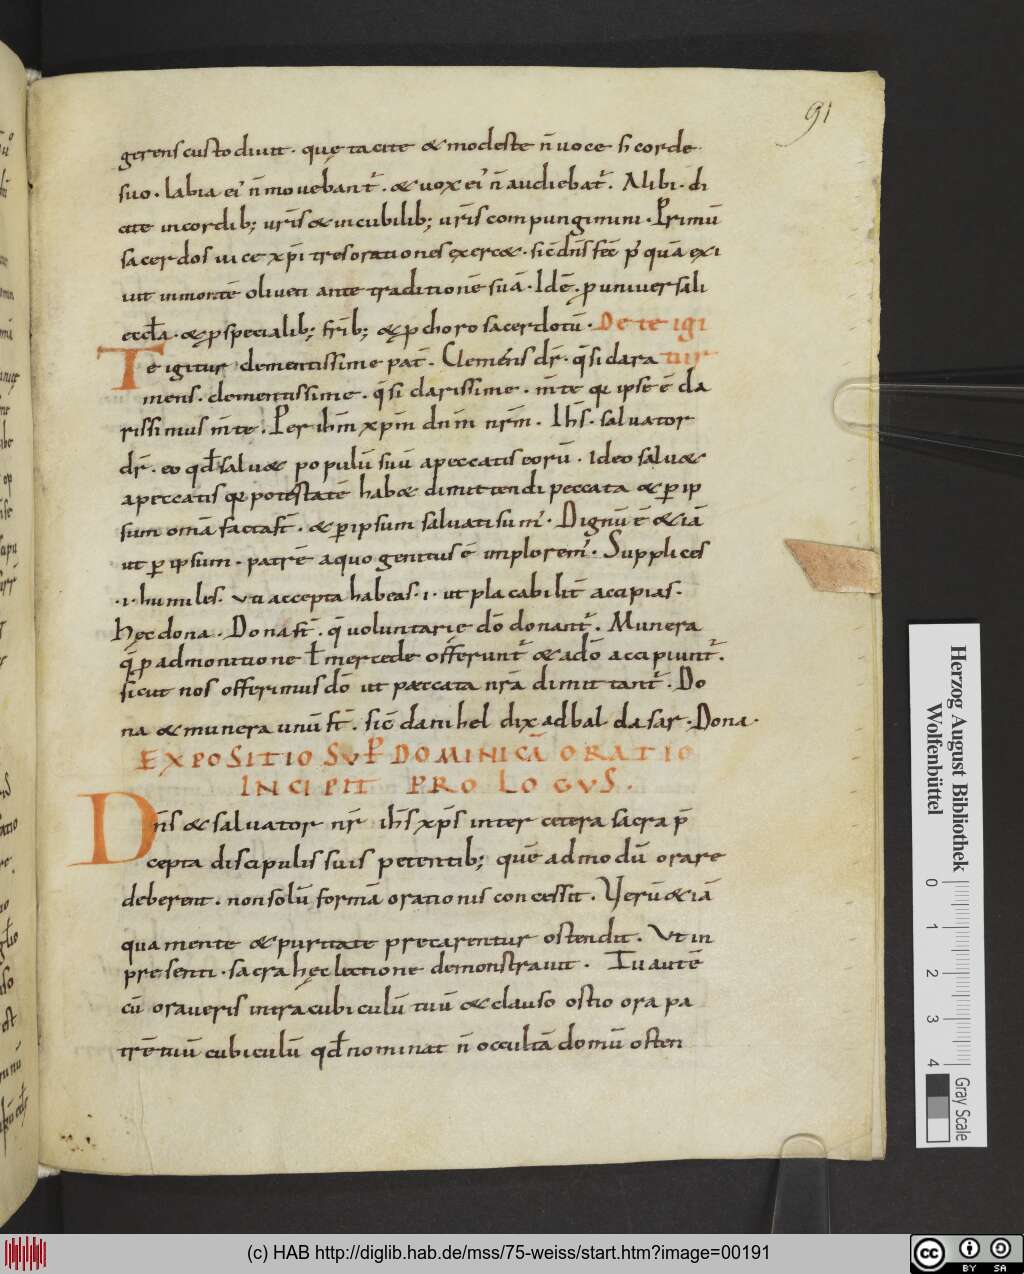 91
gerens custodiuit. quę tacite & modeste n̄ uoce s; corde
suo. labia ei' n̄ mouebant̄. & uox ei' n̄ audiebat̄. Alibi. di
cite incordib; ur̄is & incubilib; ur̄is compungimini. Primū
sacerdos uice xp̄i tres orationes exerc&. sic̄ dn̄s fec̄ p̄ quā exi
iuit inmontē oliueti ante traditionē suā. Idē. ꝑ uniuersali
eccła. & ꝑ specialib; fr̄ib; & ꝑ choro sacerdotū. De te igi
Te igitur clementissime pat̄. Clemens dr̄. q̄si clara tur
mens. clementissime. q̄si clarissime. m̄te qui ipse ē cla
rissimus m̄te. Per ihm̄ xp̄m dn̄m nr̄m. Ihs̄. saluator
dr̄. eo qd̄ salu& populū suū apeccatis eorū. Ideo salu&
apeccatis qui potestatē hab& dimittendi peccata & ꝑ ip
sum om̄a facta st̄. & ꝑ ipsum saluati sum'. Dignū ē & iā
ut ꝑ ipsum. patrē aquo genitus ē implorem'. Supplices
.i. humiles. uti accepta habeas .i. ut placabilit̄ accipias.
hęc dona. Dona st̄. q̄ uoluntarię dō donant̄. Munera
q̄ ꝑ admonitione ł mercede offerunt̄ & adō accipiunt̄.
sicut nos offerimus dō ut peccata nr̄a dimittant̄. Do
na & munera unū st̄. sic̄ danihel dix adbaldasar. Dona.
EXPOSITIO SUP̄ DOMINICĀ ORATIO
INCIPIT PROLOGUS.
Dn̄s & saluator nr̄ ihs̄ xp̄s inter cetera sacra p̄
cepta discipulis suis petentib; quē admodū orare
deberent. non solū formā orationis concessit. Uerū & iā
qua mente & puritate precarentur ostendit. Ut in
presenti. sacra hęc lectione demonstrauit. Tu autē
cū oraueris intra cubiculū tuū & clauso ostio ora pa
trē tuū cubiculū qd̄ nominat n̄ occultā domū osten
Herzog August Bibliothek
Wolfenbüttel
0 1 2 3 4
Gray Scale
(c) HAB http://diglib.hab.de/mss/75-weiss/start.htm?image=00191
cc BY SA